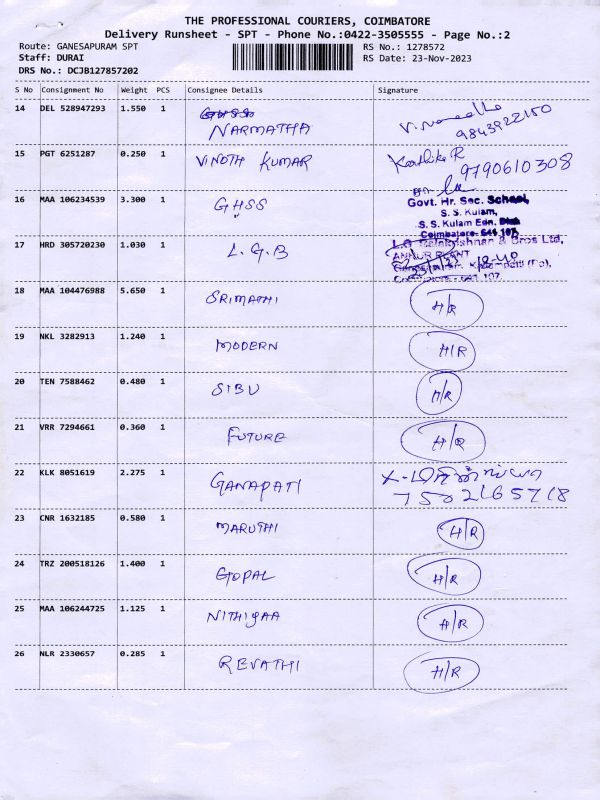 THE PROFESSIONAL COURIERS, COIMBATORE
Delivery Runsheet - SPT - Phone No.:0422-3505555 - Page No.:2
Route: GANESAPURAM SPT RS No.: 1278572
Staff: DURAI RS Date: 23-Nov-2023
DRS No.: DCJB127857202
S No Consignment No Weight PCS Consignee Details Signature
14 DEL 528947293 1.550 1 GHSS
NARMATHA
9843922150
15 PGT 6251287 0.250 1 VINOTH KUMAR Karthika R
9790610308
16 MAA 106234539 3.300 1 GHSS Govt. Hr. Sec. School,
S. S. Kulam,
S. S. Kulam Edn. Dist
Coimbatore- 641 107.
17 HRD 305720230 1.030 1 L.G.B L.G. Balakrishnan & Bros Ltd,
ANNUR PLANT
18 MAA 104476988 5.650 1 SRIMATHI H/R
19 NKL 3282913 1.240 1 MODERN H/R
20 TEN 7588462 0.480 1 SIBU H/R
21 VRR 7294661 0.360 1 FUTURE H/R
22 KLK 8051619 2.275 1 GANAPATI
7502165718
23 CNR 1632185 0.580 1 MARUTHI H/R
24 TRZ 200518126 1.400 1 GOPAL H/R
25 MAA 106244725 1.125 1 NITHIYAA H/R
26 NLR 2330657 0.285 1 REVATHI H/R